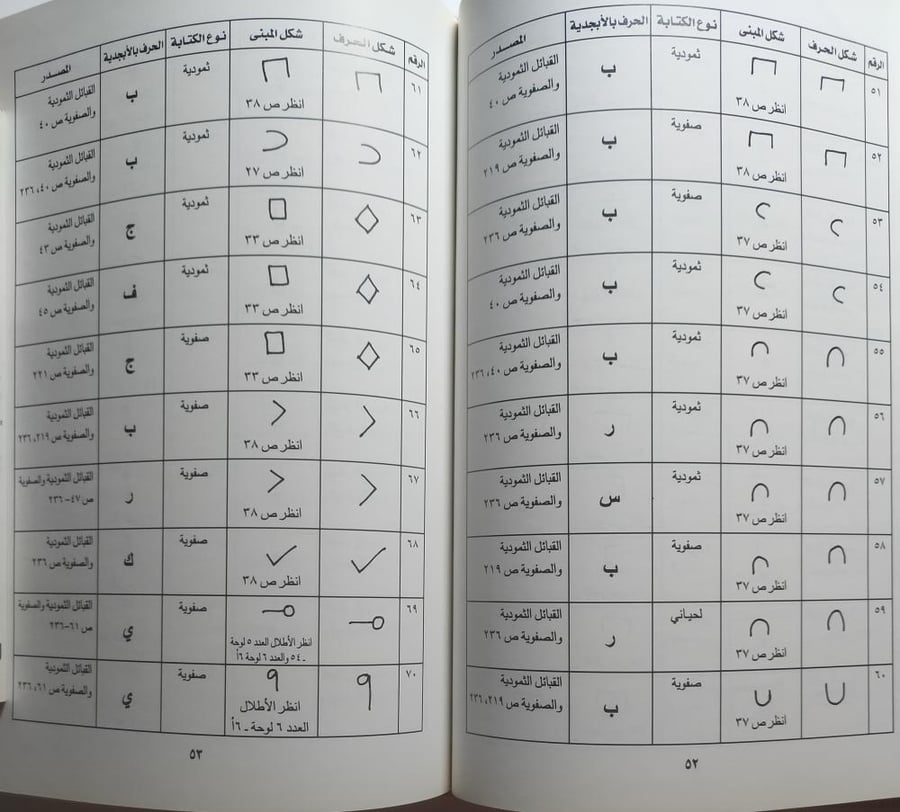 الرقم شكل الحرف شكل المبنى نوع الكتابة الحرف بالأبجدية المصدر
٥١ انظر ص ٣٨ ثمودية ب القبائل الثمودية والصفوية ص ٤٠
٥٢ انظر ص ٣٨ صفوية ب القبائل الثمودية والصفوية ص ٢١٩
٥٣ انظر ص ٣٧ صفوية ب القبائل الثمودية والصفوية ص ٢٣٦
٥٤ انظر ص ٣٧ ثمودية ب القبائل الثمودية والصفوية ص ٤٠
٥٥ انظر ص ٣٧ ثمودية ب القبائل الثمودية والصفوية ص ٤٠، ٢٣٦
٥٦ انظر ص ٣٧ ثمودية ر القبائل الثمودية والصفوية ص ٢٣٦
٥٧ انظر ص ٣٧ ثمودية س القبائل الثمودية والصفوية ص ٢٣٦
٥٨ انظر ص ٣٧ صفوية ب القبائل الثمودية والصفوية ص ٢١٩
٥٩ انظر ص ٣٧ لحياني ر القبائل الثمودية والصفوية ص ٢٣٦
٦٠ انظر ص ٣٧ صفوية ب القبائل الثمودية والصفوية ص ٢١٩، ٢٣٦
٥٢
الرقم شكل الحرف شكل المبنى نوع الكتابة الحرف بالأبجدية المصدر
٦١ انظر ص ٣٨ ثمودية ب القبائل الثمودية والصفوية ص ٤٠
٦٢ انظر ص ٢٧ ثمودية ب القبائل الثمودية والصفوية ص ٤٠، ٢٣٦
٦٣ انظر ص ٣٣ ثمودية ج القبائل الثمودية والصفوية ص ٤٣
٦٤ انظر ص ٣٣ ثمودية ف القبائل الثمودية والصفوية ص ٤٥
٦٥ انظر ص ٣٣ صفوية ج القبائل الثمودية والصفوية ص ٢٢١
٦٦ انظر ص ٣٨ صفوية ب القبائل الثمودية والصفوية ص ٢١٩، ٢٣٦
٦٧ انظر ص ٣٨ صفوية ر القبائل الثمودية والصفوية ص ٤٧-٢٣٦
٦٨ انظر ص ٣٨ صفوية ك القبائل الثمودية والصفوية ص ٢٣٦
٦٩ انظر الأطلال العدد ٥ لوحة ٥٤ـ والعدد ٦ لوحة ٦أ صفوية ي القبائل الثمودية والصفوية ص ٦١-٢٣٦
٧٠ انظر الأطلال العدد ٦ لوحة ـ ٦أ صفوية ي القبائل الثمودية والصفوية ص ٦١، ٢٣٦
٥٣